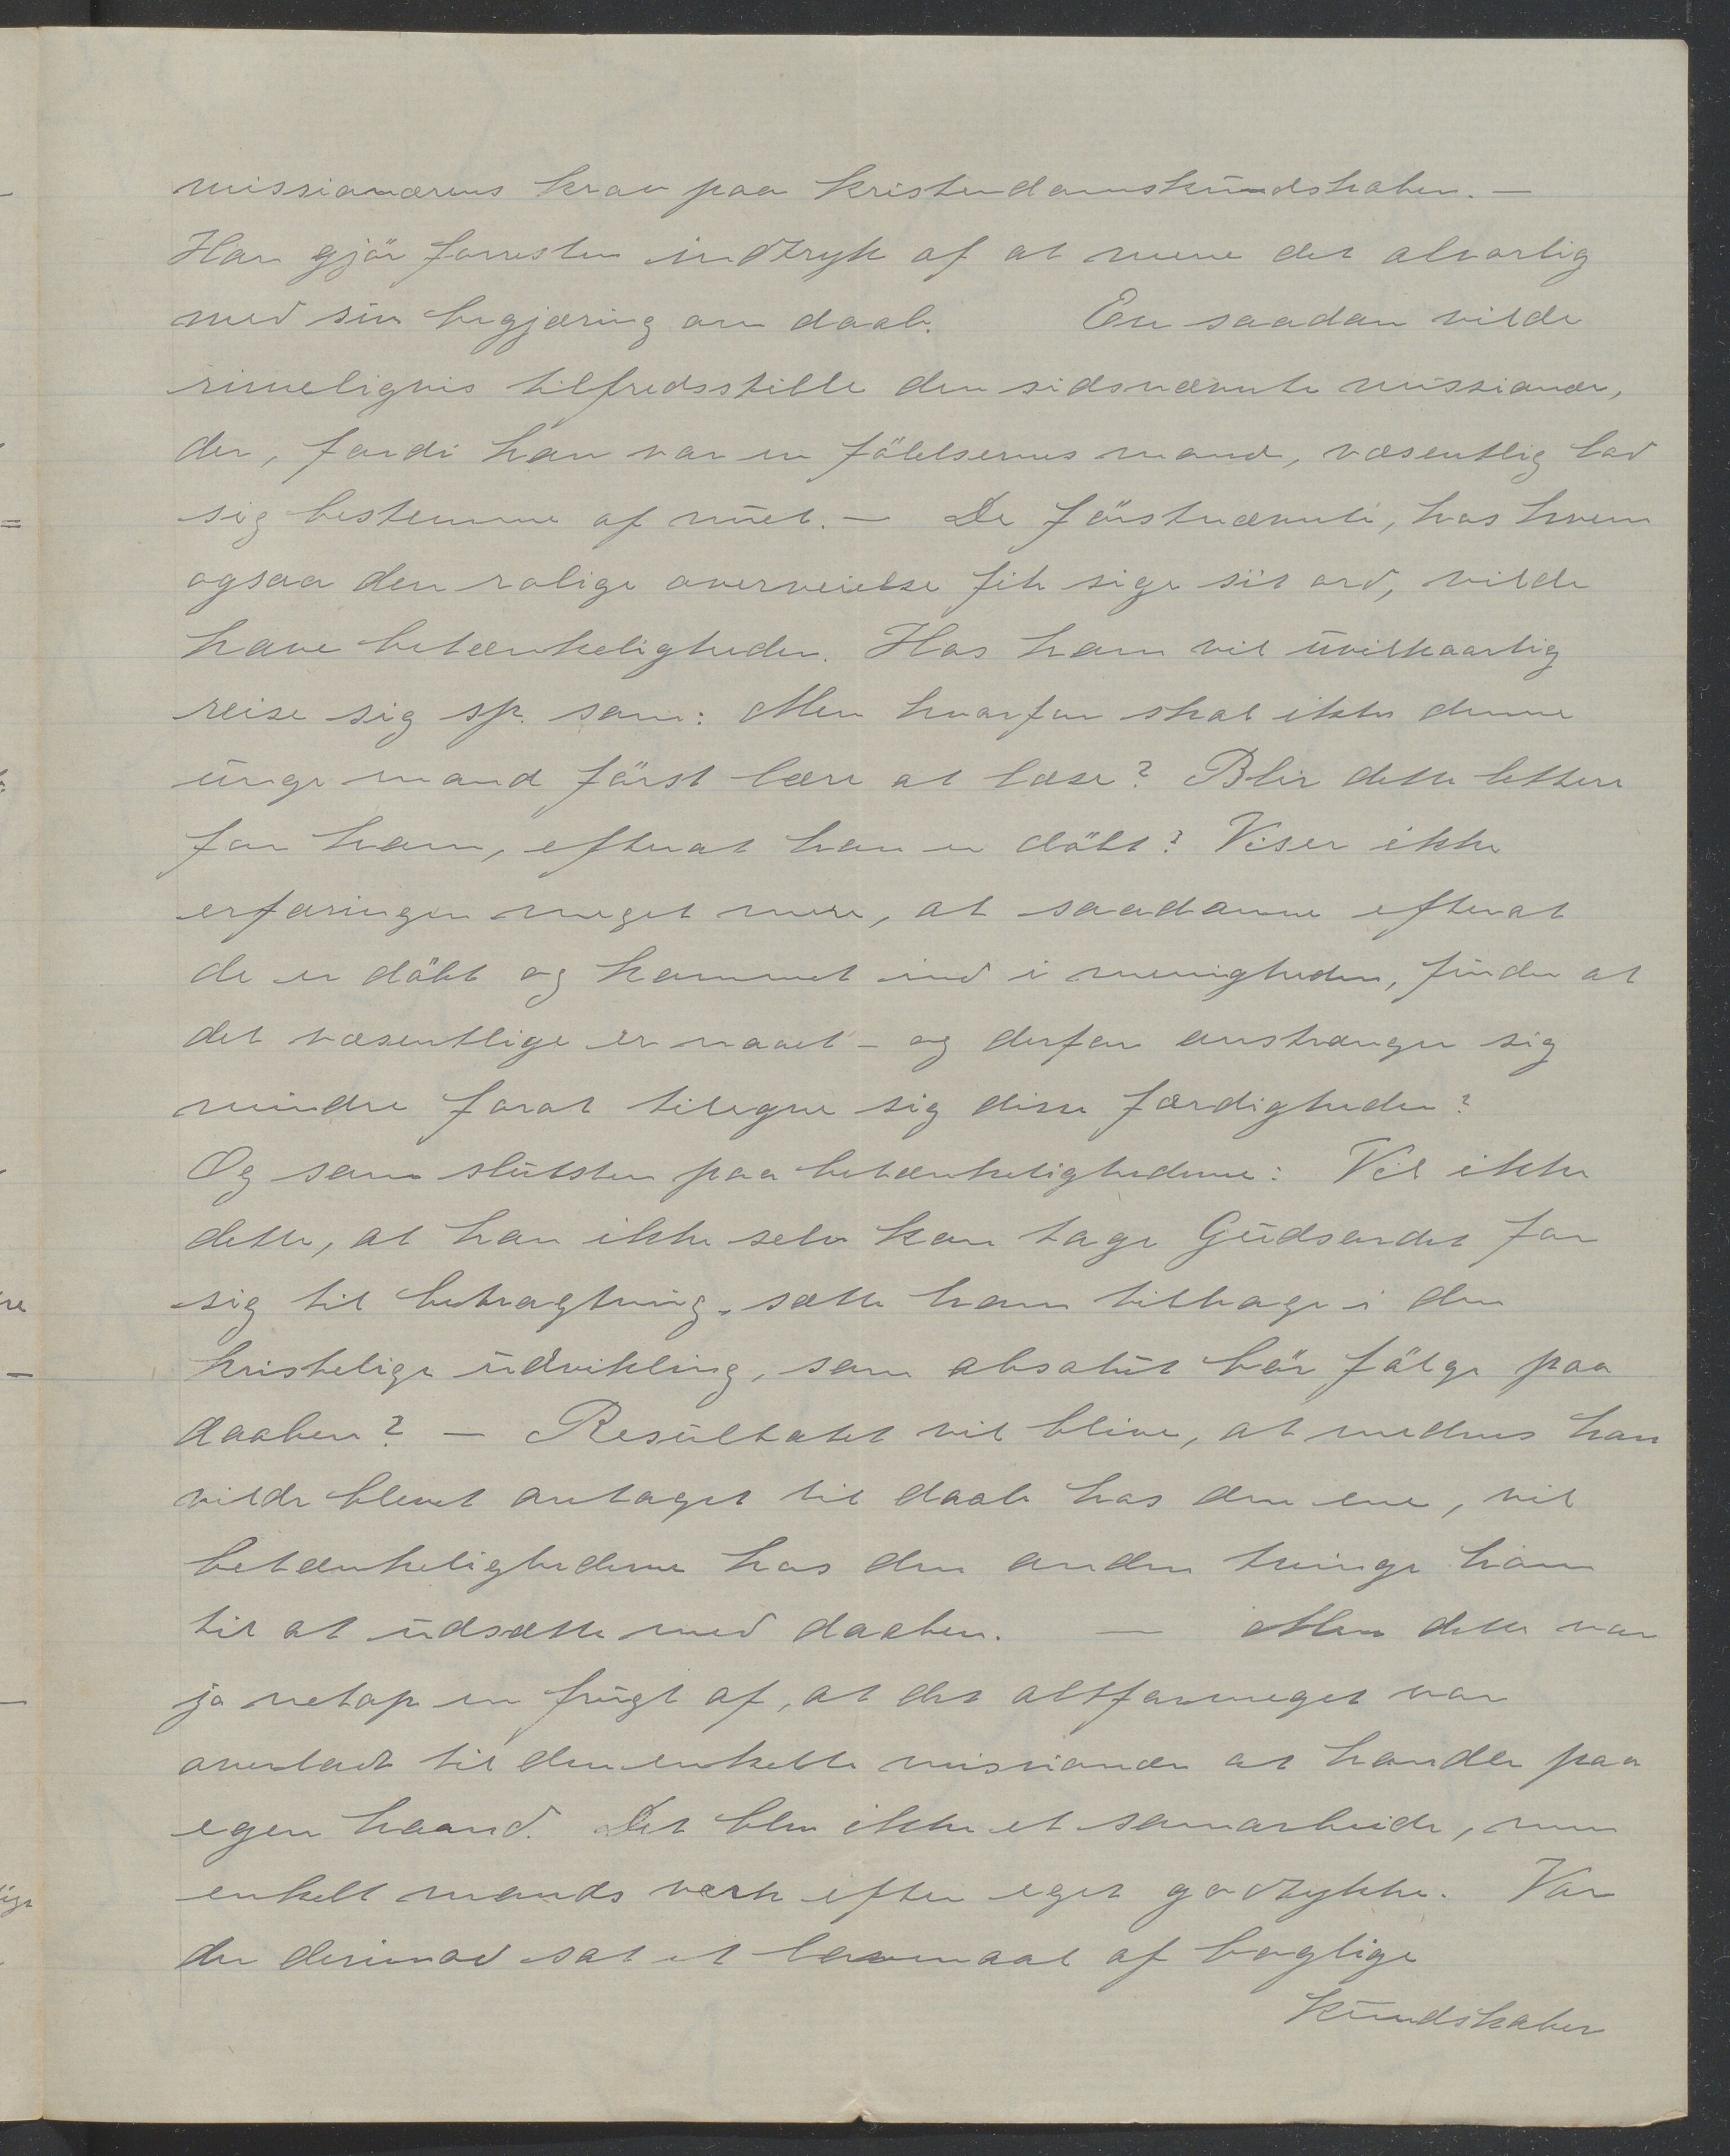 missionærens krav paa kristendomskundskaben. —
Han gjör forresten indtryk af at mene det alvorlig
med sin begjæring om daab. En saadan vilde
rimeligvis tilfredsstille den sidsnævnte missionær,
der, fordi han var en fölelsernes mand, væsentlig lod
sig bestemme af nuet. — De förstnævnte, hos hvem
ogsaa den rolige overveielse fik sige sit ord, vilde
have betænkeligheder. Hos ham vil uvilkaarlig
reise sig sp. som: Men hvorfor skal ikke denne
unge mand först lære at læse? Blir dette lettere
for ham, efterat han er döbt? Viser ikke
erfaringen meget mere, at saadanne efterat
de er döbt og kommet ind i menigheden, finder at
det væsentlige er naaet – og derfor anstrænger sig
mindre forat tilegne sig disse færdigheder?
Og som slutsten paa betænkelighederne: Vil ikke
dette, at han ikke selv kan tage Gudsordet for
sig til betragtning, sætte ham tilbage i den
kristelige udvikling, som absolut bör fölge paa
daaben? — Resultatet vil blive, at medens han
vilde blevet antaget til daab hos den ene, vil
betænkelighederne hos den anden tvinge ham
til at udsætte med daaben. — Men dette var
ja netop en frugt af, at det altformeget var
overladt til den enkelte missionær at handle paa
egen haand. Det blev ikke et samarbeide, men
enkelt mands værk efter eget godtykke. Var
der derimod sat et lavmaal af boglige
kundskaber